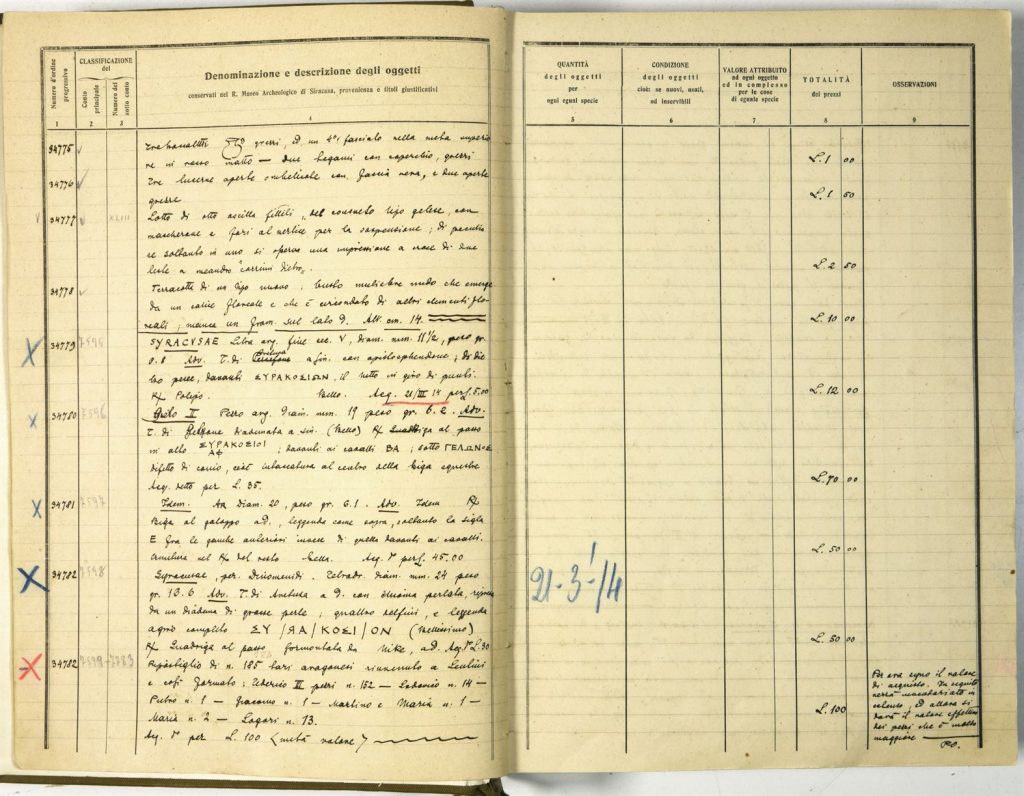 Numero d'ordine progressivo
CLASSIFICAZIONE
del
Conto principale
Numero del sotto conto
Denominazione e descrizione degli oggetti
conservati nel R. Museo Archeologico di Siracusa, provenienza e titoli giustificativi
1 2 3 4
34775 Tre grezzi, ed un 4º fasciato nella metà superio
re in rosso matto — due con coperchio, grezzi
34776 Tre lucerne aperte ombelicate con fascia nera, e due aperte
grezze
34777 XLIII Lotto di otto oscilla fittili, del consueto tipo gelese, con
mascherone e fori al vertice per la sospensione; di particola
re soltanto in uno si osserva una impressione a croce di due
liste a meandro
34778 Terracotta di un tipo nuovo; busto muliebre nudo che emerge
da un calice floreale e che è circondato di altri elementi flo-
reali; manca un fram. sul lato d. Alt. cm. 14.
34779 7595 SYRACVSAE Litra arg. fine sec. V, diam. mm. 11 1/2, peso gr.
0.8 Adv. T. di a sin. con opistosphendone; di die
tro pesce, davanti ΣΥΡΑΚΟΣΙΩΝ, il tutto in giro di punti.
R/ Polipo. Bello. Acq. 21/III 14 per £ 5,00
34780 7596 II Pezzo arg. Diam. mm. 19 peso gr. 6.2. Adv.
T. di diademata a sin. (Bello) R/ Quadriga al passo
in alto ΣΥΡΑΚΟΣΙΟΙ
; davanti ai cavalli BA; sotto ΓΕΛΩΝΟΣ
difetto di conio, cioè al centro della biga
Acq. detto per L. 35.
34781 7597 Idem. AR Diam. 20, peso gr. 6.1. Adv. Idem R/
Biga al galoppo a d., leggenda come sopra, soltanto la sigla
E fra le gambe anteriori invece di quella davanti ai cavalli.
nel R/ del resto bella. Acq. per £ 45.00
34782 7598 Syracusae, per. Dinomenidi. Tetradr. diam. mm. 24 peso
gr. 13.6 Adv. T. di Aretusa a d. con chioma perlata,
da un diadema di grosse perle; quattro delfini, e leggenda
agiro completo ΣΥ/ΡΑ/ΚΟΣΙ/ΟΝ (Bellissimo)
R/ Quadriga al passo sormontata da Nike, a d. Acq. L. 50
34782 7598-7783 Ripostiglio di n. 185 tarì aragonesi rinvenuto a Lentini
e così formato: Federico III pezzi n. 152 — Lodovico n. 14 —
Pietro n. 1 — Giacomo n. 1 — Martino e Maria n. 1 —
Maria n. 2 — Logori n. 13.
Acq. per L. 100 (metà valore)
QUANTITÀ
degli oggetti
per
ogni egual specie
CONDIZIONE
degli oggetti
cioè: se nuovi, usati,
od inservibili
VALORE ATTRIBUITO
ad ogni oggetto
ed in complesso
per le cose
di eguale specie
TOTALITÀ
dei prezzi
OSSERVAZIONI
5 6 7 8 9
L. 1 00
L. 1 50
L. 2 50
L. 10 00
L. 12 00
L. 70 00
L. 50 00
21-3-14
L. 50 00
L. 100
Per ora segno il valore
di acquisto. In seguito
verrà inventariato in
, ed allora si
darà il valore effettivo
dei pezzi che è molto
maggiore
P.O.